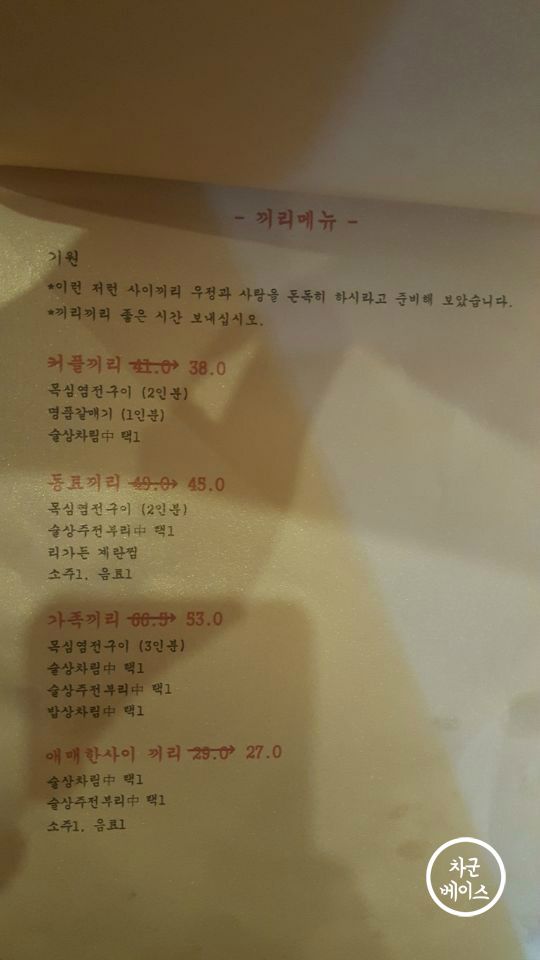 - 끼리메뉴 -
기원
*이런 저런 사이끼리 우정과 사랑을 돈독히 하시라고 준비해 보았습니다.
*끼리끼리 좋은 시간 보내십시오.
커플끼리 41.0→ 38.0
목심염전구이 (2인분)
명품갈매기 (1인분)
술상차림中 택1
동료끼리 49.0→ 45.0
목심염전구이 (2인분)
술상주전부리中 택1
리가든 계란찜
소주1, 음료1
가족끼리 66.5→ 53.0
목심염전구이 (3인분)
술상차림中 택1
술상주전부리中 택1
밥상차림中 택1
애매한사이 끼리 29.0→ 27.0
술상차림中 택1
술상주전부리中 택1
소주1, 음료1
차군
베이스